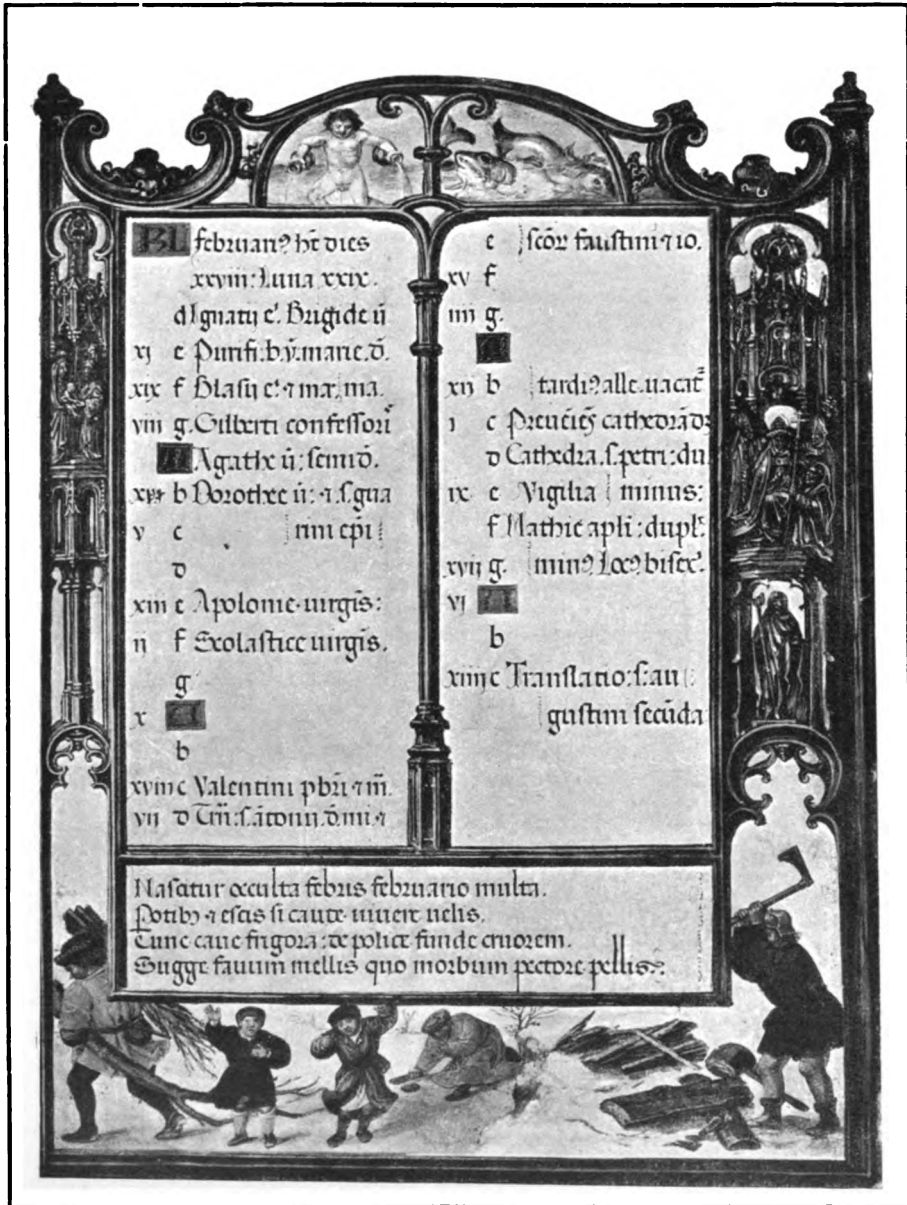 KL februari⁹ ht dies
xxviii: Luna xxix.
d Ignatij e'. Brigide ū
xj e Purifi: b. v̄. marie. d̄.
xix f Blasij e': ⁊ mar̄; ma.
viij g. Gilberti confessori
A Agathe ū: semid̄.
b Dorothee ū: ⁊. s. gua
v c rini ep̄i
d
xiii e Apolonie uirgīs:
ii f Scolastice uirgīs.
g
x A
b
xviii c Valentini pb̄ri ⁊ m̄.
vii d s. ātonii. d̄. mi. ⁊
e sc̄or̄ faustini ⁊ io.
xv f
iiii g.
A
xij b tardi⁹ alle. uacat̄
i c cathedrā
d Cathedra. s. petri: du
ix e Vigilia minus:
f Mathie apl̄i: dupl̄.
xvij g. min⁹ Loc⁹ bisex̄.
vj A
b
xiiij c Translatio: s. au
gustini secūda
Nascitur occulta febris februario multa.
Potib⁹ ⁊ escis si caute uiuere uelis.
Tunc caue frigora: de police funde cruorem.
Sugge fauum mellis quo morbum pectore pellis.